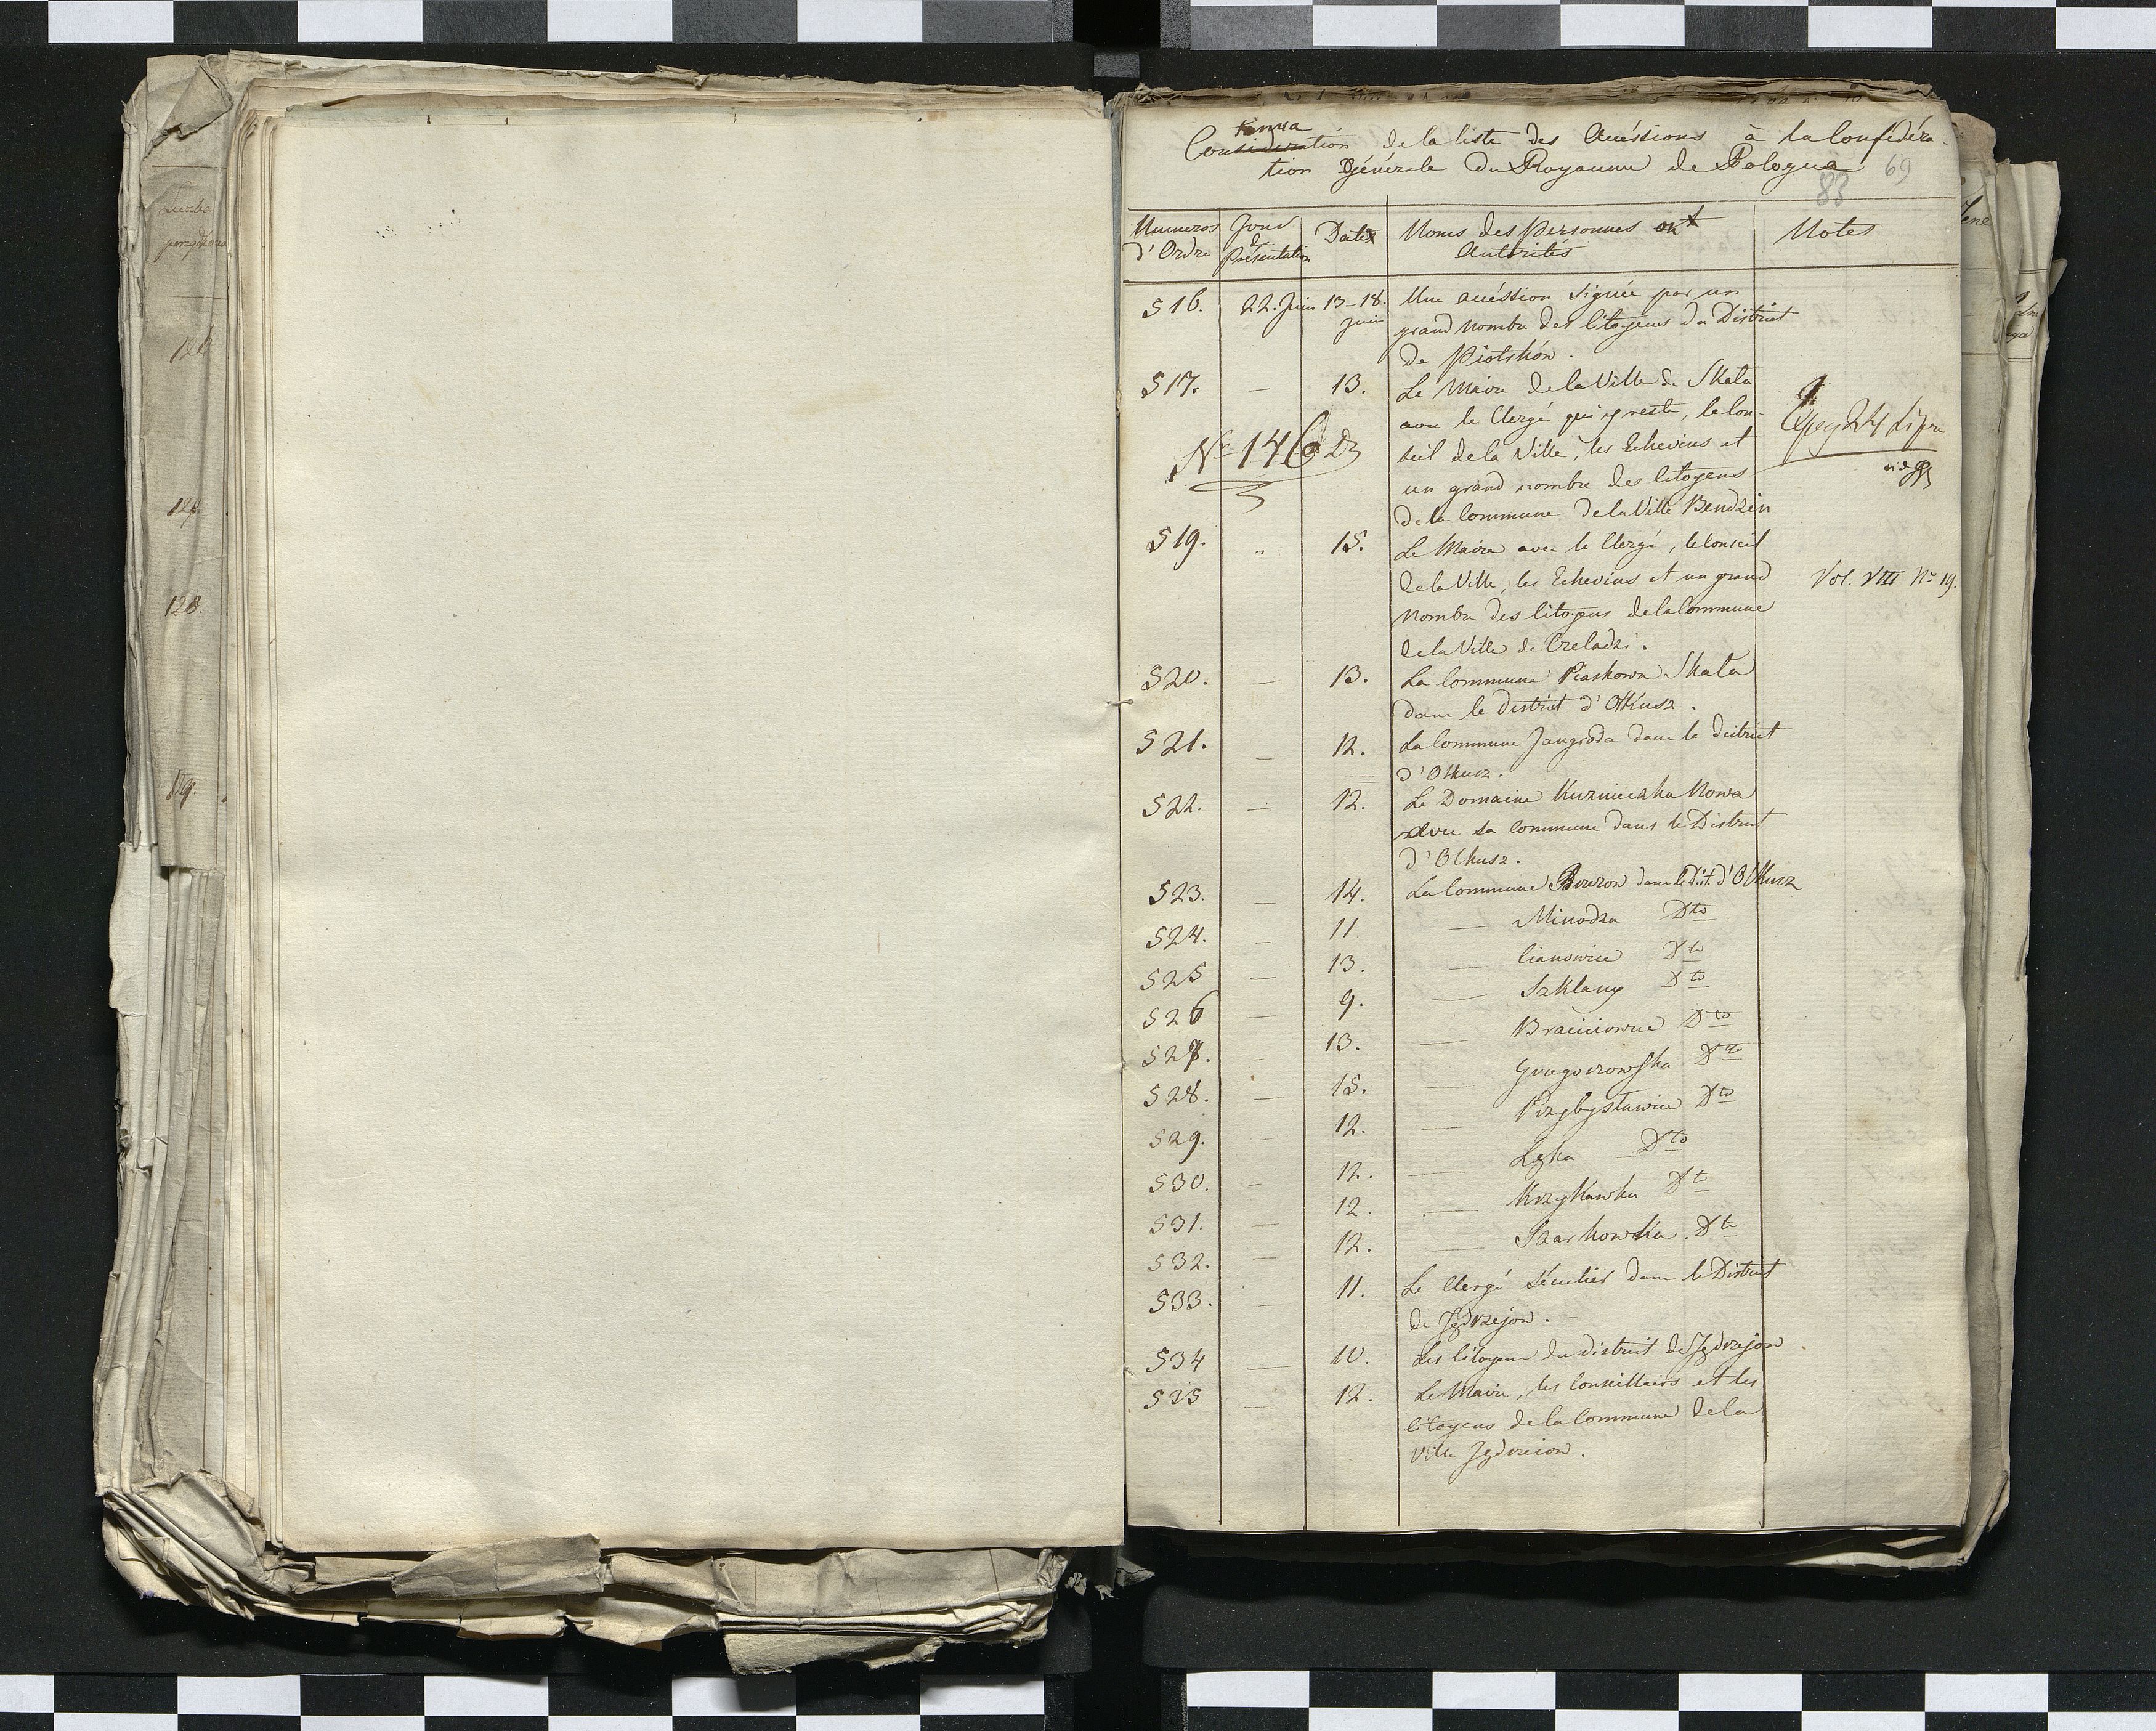 Liczba
porządkowa
126
127
128.
129.
tinua
Consideration de la liste des Accéssions à la Confédéra-
tion Générale du Royaume de Pologne 69
83
Numeros Jour Date Noms des Personnes et Notes
d'Ordre de Présentation Autorités
516. 22. Juin 13-18. Une accéssion signée par un
juin grand nombre des Citoyens du District
de Piotrków.
517. — 13. Le Maire de la Ville de Skała
avec le Clergé qui y reste, le Con-
No 146 seil de la Ville, les Echevins et
un grand nombre des Citoyens
de la Commune de la Ville Bendzin
519. " 15. Le Maire avec le Clergé, le Conseil
de la Ville, les Echevins et un grand Vol. VIII No 19.
Nombre des Citoyens de la Commune
de la Ville de Czeladzi.
520. — 13. La Commune Piaskowa Skała
dans le district d'Olkusz.
521. — 12. La Commune Jangroda dans le district
d'Olkusz.
522. — 12. Le Domaine Kuzniczka Nowa
avec sa Commune dans le District
d'Olkusz.
523. — 14. La Commune dans le Dist. d'Olkusz
524. — 11 — Minodza Dto
525 — 13. — Cianowice Dto
526 — 9. — Szklany Dto
527. — 13. — Braciiowice Dto
528. — 15. — Gregorzowska Dto
529. — 12. — Przybysławice Dto
530. — 12. — Łęka — Dto
531. — 12. — Krzykawka Dto
532. — 12. — Szarkowka. Dto
533. — 11. Le Clergé séculier dans le District
de Jędrzejow.
534 — 10. Les Citoyens du district de Jędrzejow
535 — 12. Le Maire, les Conseillairs et les
Citoyens de la Commune de la
Ville Jędrzeiow.